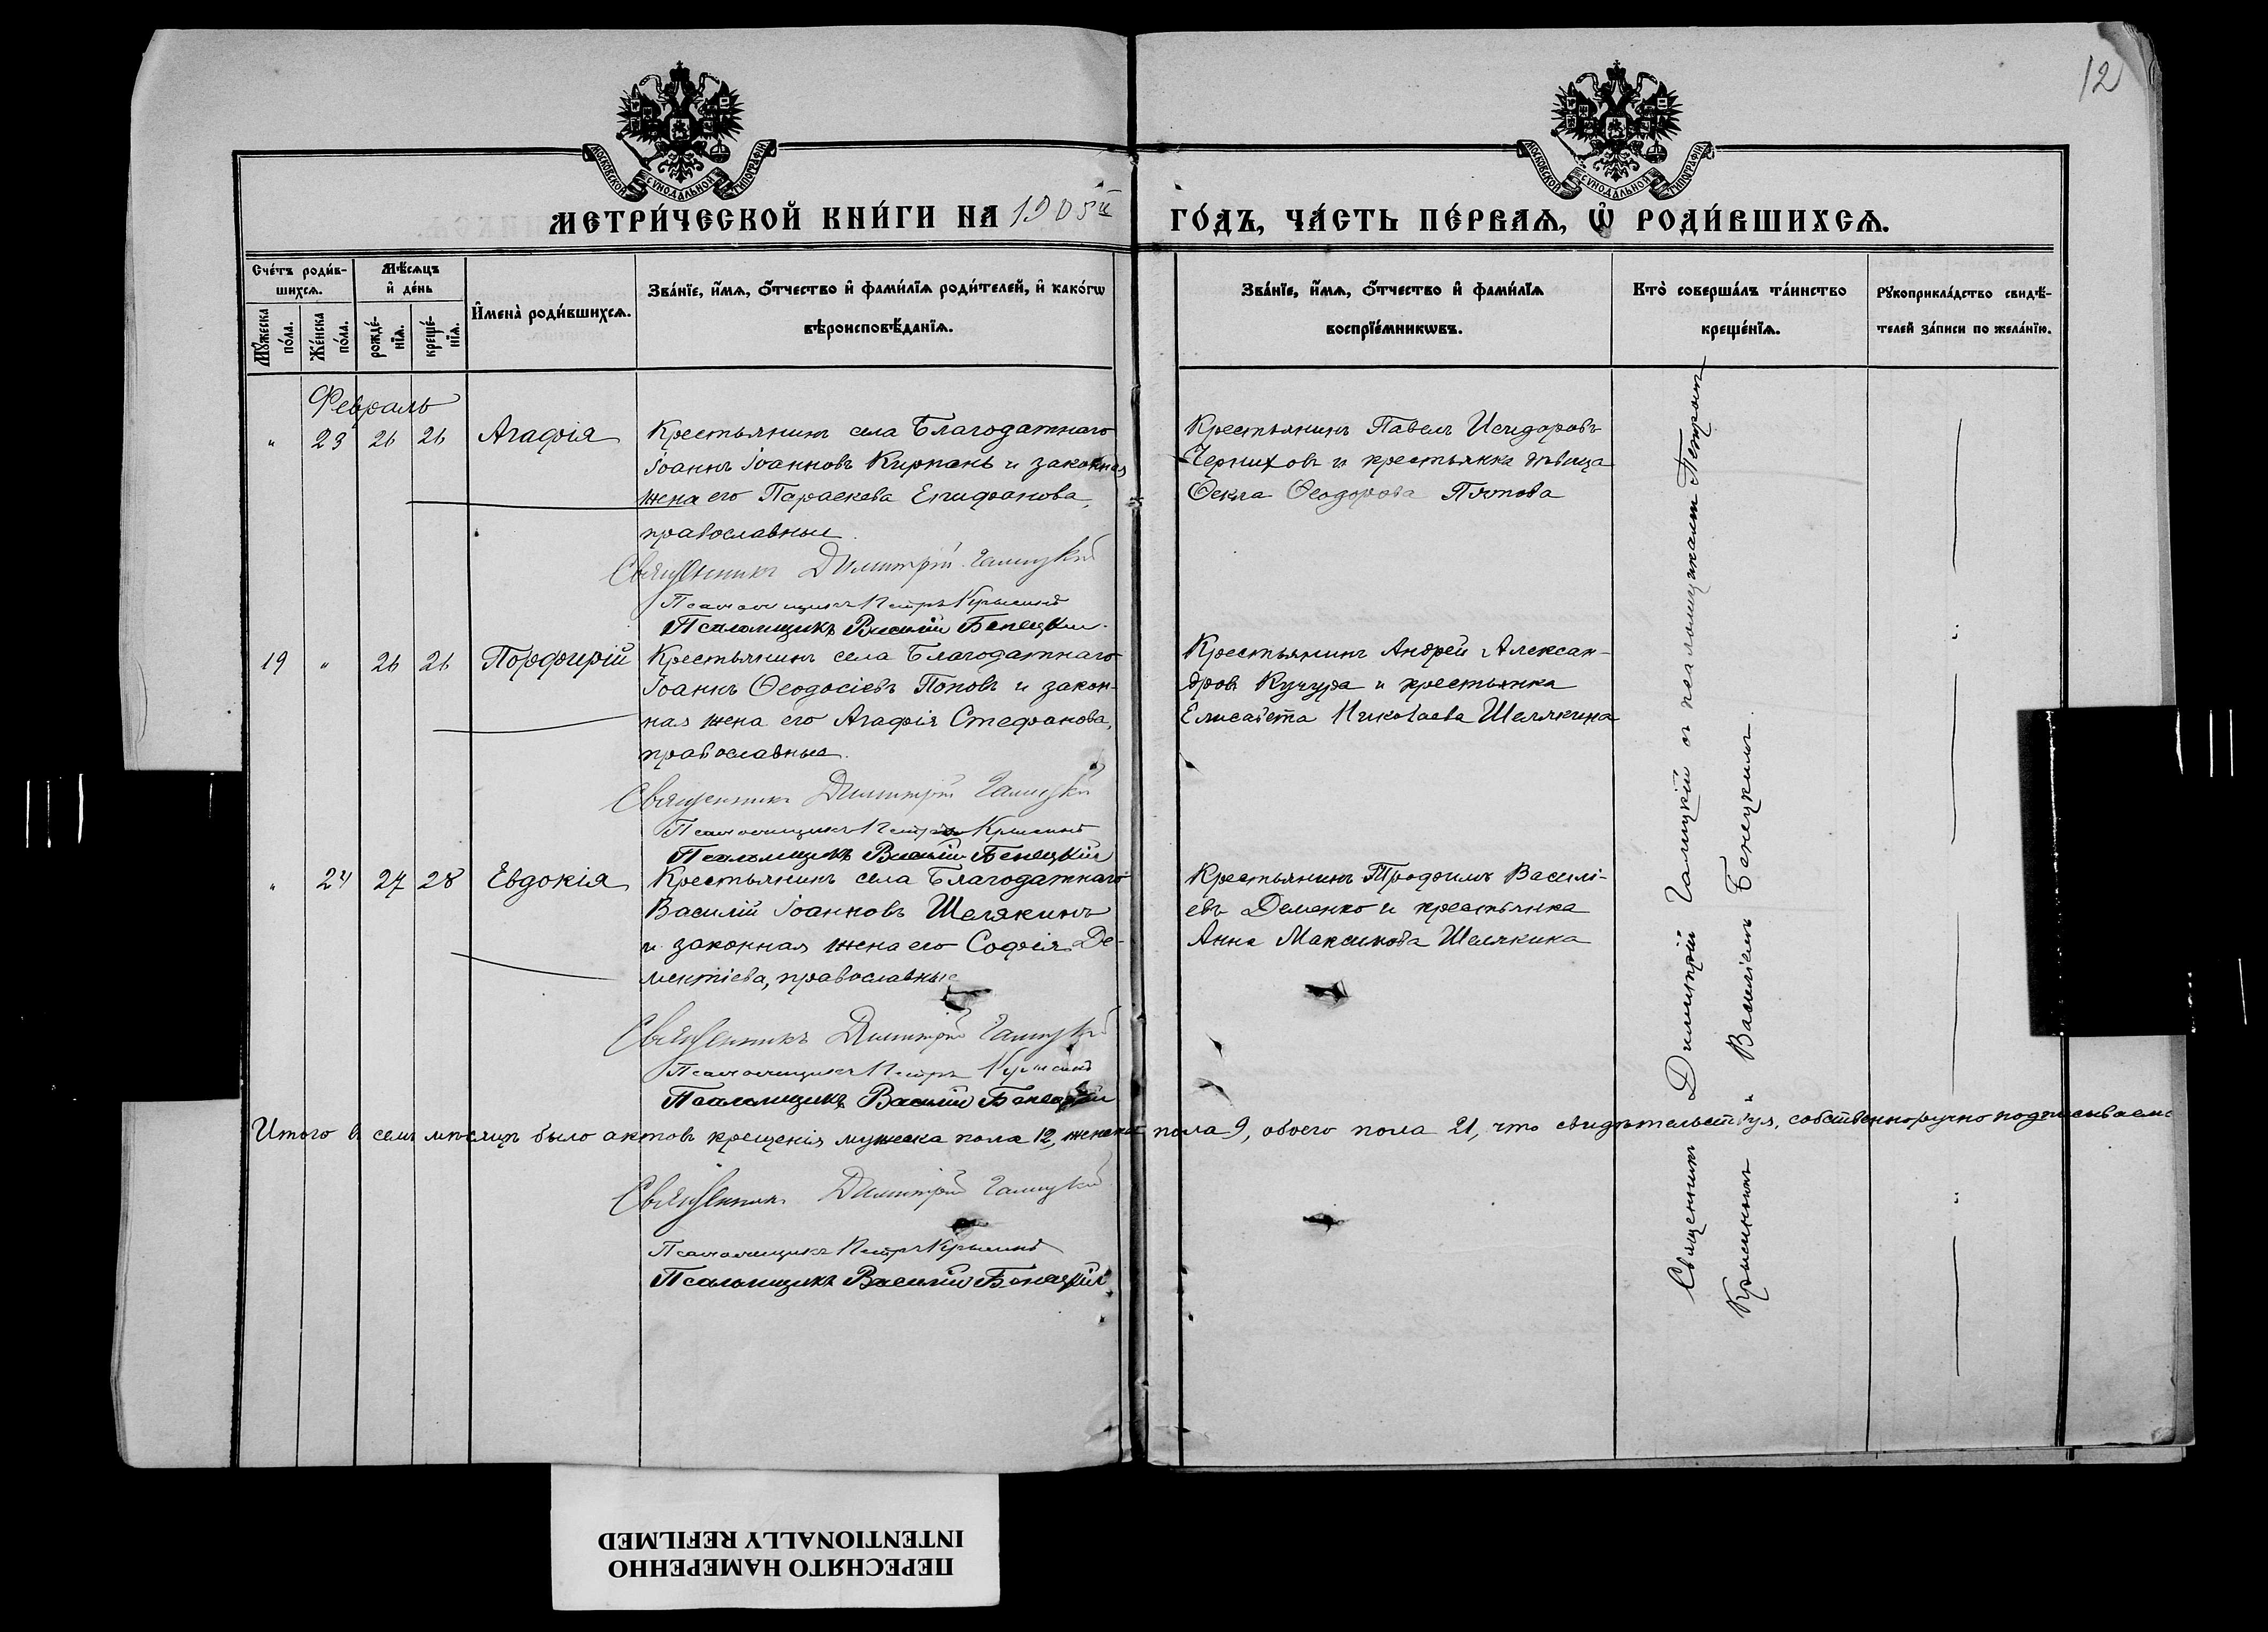 12
МОСКОВСКОЙ СѴНОДАЛЬНОЙ ТИПОГРАФІИ
МОСКОВСКОЙ СѴНОДАЛЬНОЙ ТИПОГРАФІИ
МЕТРИ́ЧЕСКОЙ КНИ́ГИ НА 1905й ГО́ДЪ, ЧА́СТЬ ПЕ́РВАѦ, Ѽ РОДИ́ВШИХСѦ.
Сче́тъ роди́в-
шихсѧ.
Мꙋ́жеска
по́ла.
Же́нска
по́ла.
Мѣ́сѧцъ
и҆ де́нь
рожде́-
нїѧ.
креще́-
нїѧ.
И҆мена̀ роди́вшихсѧ.
Зва́нїе, и҆́мѧ, ѻ҆́тчество и҆ фами́лїѧ роди́телей, и҆ како́гѡ
вѣроисповѣ́данїѧ.
Зва́нїе, и҆́мѧ, ѻ҆́тчество и҆ фами́лїѧ
воспрїе́мникѡвъ.
Кто̀ соверша́лъ та́инство
креще́нїѧ.
Рꙋкоприкла́дство свидѣ́-
телей за́писи по жела́нїю.
Февраль
" 23 26 26 Агафія
Крестьянинъ села Благодатнаго
Іоаннъ Іоанновъ Кирпань и законная
жена его Параскева Епифанова,
православные.
Священникъ Димитрій Галицкій
Псаломщикъ Петръ Крысинъ
Псаломщикъ Василій Бенецкій
Крестьянинъ Павелъ Исидоровъ
Черниховъ и крестьянка дѣвица
Ѳекла Ѳеодорова Попова
19 " 26 26 Порфирій
Крестьянинъ села Благодатнаго
Іоаннъ Ѳеодосіевъ Поповъ и закон-
ная жена его Агафія Стефанова,
православные.
Священникъ Димитрій Галицкій
Псаломщикъ Петръ Крысинъ
Псаломщикъ Василій Бенецкій
Крестьянинъ Андрей Алексан-
дровъ Кучура и крестьянка
Елисавета Николаева Шелякина
" 24 27 28 Евдокія
Крестьянинъ села Благодатнаго
Василій Іоанновъ Шелякинъ
и законная жена его Софія Де-
ментіева, православные
Священникъ Димитрій Галицкій
Псаломщикъ Петръ Крысинъ
Псаломщикъ Василій Бенецкій
Крестьянинъ Трофимъ Василі-
евъ Деменко и крестьянка
Анна Максимова Шелякина
Священникъ Димитрій Галицкій съ псаломщикомъ Петромъ
Крысинымъ и Василіемъ Бенецкимъ.
Итого въ семъ мѣсяцѣ было актовъ крещенія мужеска пола 12, женска пола 9, обоего пола 21, что свидѣтельствуя, собственноручно подписываемъ
Священникъ Димитрій Галицкій
Псаломщикъ Петръ Крысинъ
Псаломщикъ Василій Бенецкій
ПЕРЕСНЯТО НАМЕРЕННО
INTENTIONALLY REFILMED